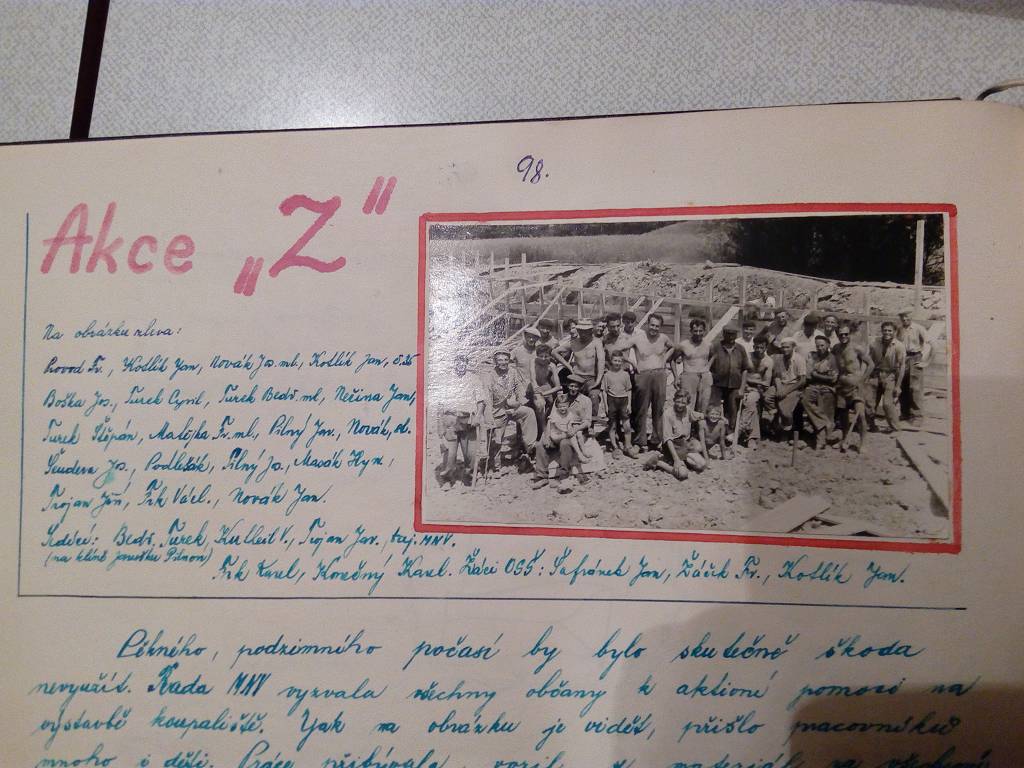 98.
Akce „Z"
Na obrázku zleva:
Fr., Kotlík Jan, Novák Jos. ml., Kotlík Jan, č. 25
Boška Jos., Turek Cyril, Turek Bedř. ml., Neřina Jan,
Turek Štěpán, Matějka Fr. ml., Pilný Jar., Novák, st.
Jos., Podlešák, Pilný Jos., Masák Hyn.,
Trojan Jiří, Frk Václ., Novák Jan.
Sedící: Bedř. Turek, V., Trojan Jar., taj. MNV.
(na klíně Pilnou)
Frk Karel, Konečný Karel. Žáci OSŠ: Šafránek Jan, Žáček Fr., Kotlík Jan.
Pěkného, podzimního počasí by bylo skutečně škoda
nevyužít. Rada MNV vyzvala všechny občany k aktivní pomoci na
výstavbě koupaliště. Jak na obrázku je vidět, přišlo pracovníků
mnoho i dětí. Práce přibývala, materiál na všechny